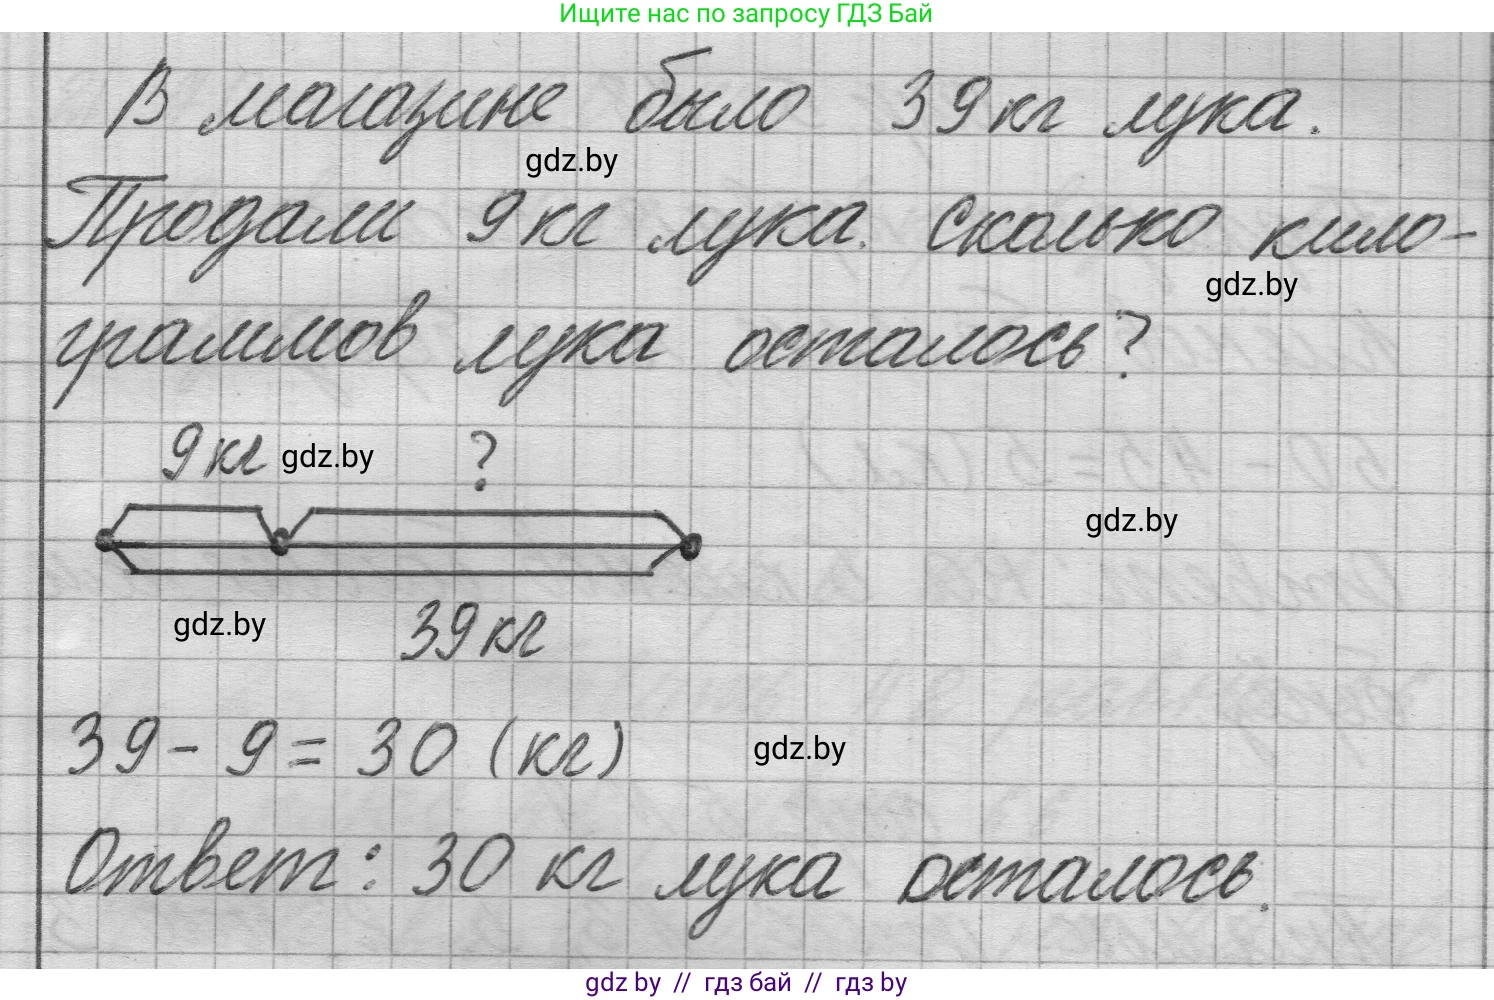 Ищите нас по запросу ГДЗ Бай
В магазине было 39 кг лука.
gdz.by
Продали 9 кг лука. Сколько кило-
gdz.by
граммов лука осталось?
9 кг gdz.by ?
gdz.by
gdz.by 39 кг
39 - 9 = 30 (кг)
gdz.by
Ответ: 30 кг лука осталось.
gdz.by // гдз бай // гдз by